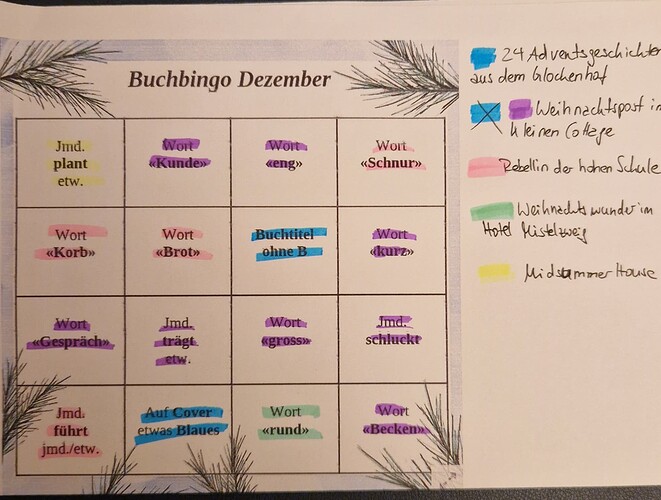 Buchbingo Dezember
Jmd.
plant
etw.
Wort
«Kunde»
Wort
«eng»
Wort
«Schnur»
Wort
«Korb»
Wort
«Brot»
Buchtitel
ohne B
Wort
«kurz»
Wort
«Gespräch»
Jmd.
trägt
etw.
Wort
«gross»
Jmd.
schluckt
Jmd.
führt
jmd./etw.
Auf Cover
etwas Blaues
Wort
«rund»
Wort
«Becken»
24 Adventsgeschichten
aus dem Glockenhof
Weihnachtspost im
kleinen Cottage
Rebellin der hohen Schule
Weihnachtswunder im
Hotel Mistelzweig
Midsummer House